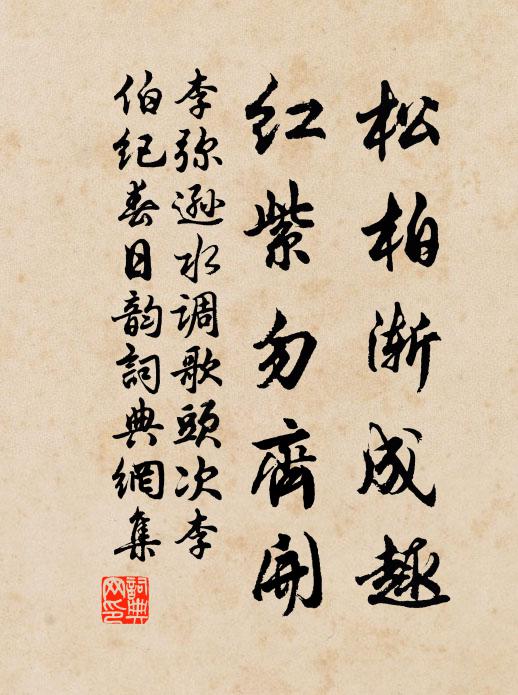 松柏渐成趣
红紫勿齊開
李弥逊水调歌頭次李
伯纪春日韵詞典網集
詞典网印